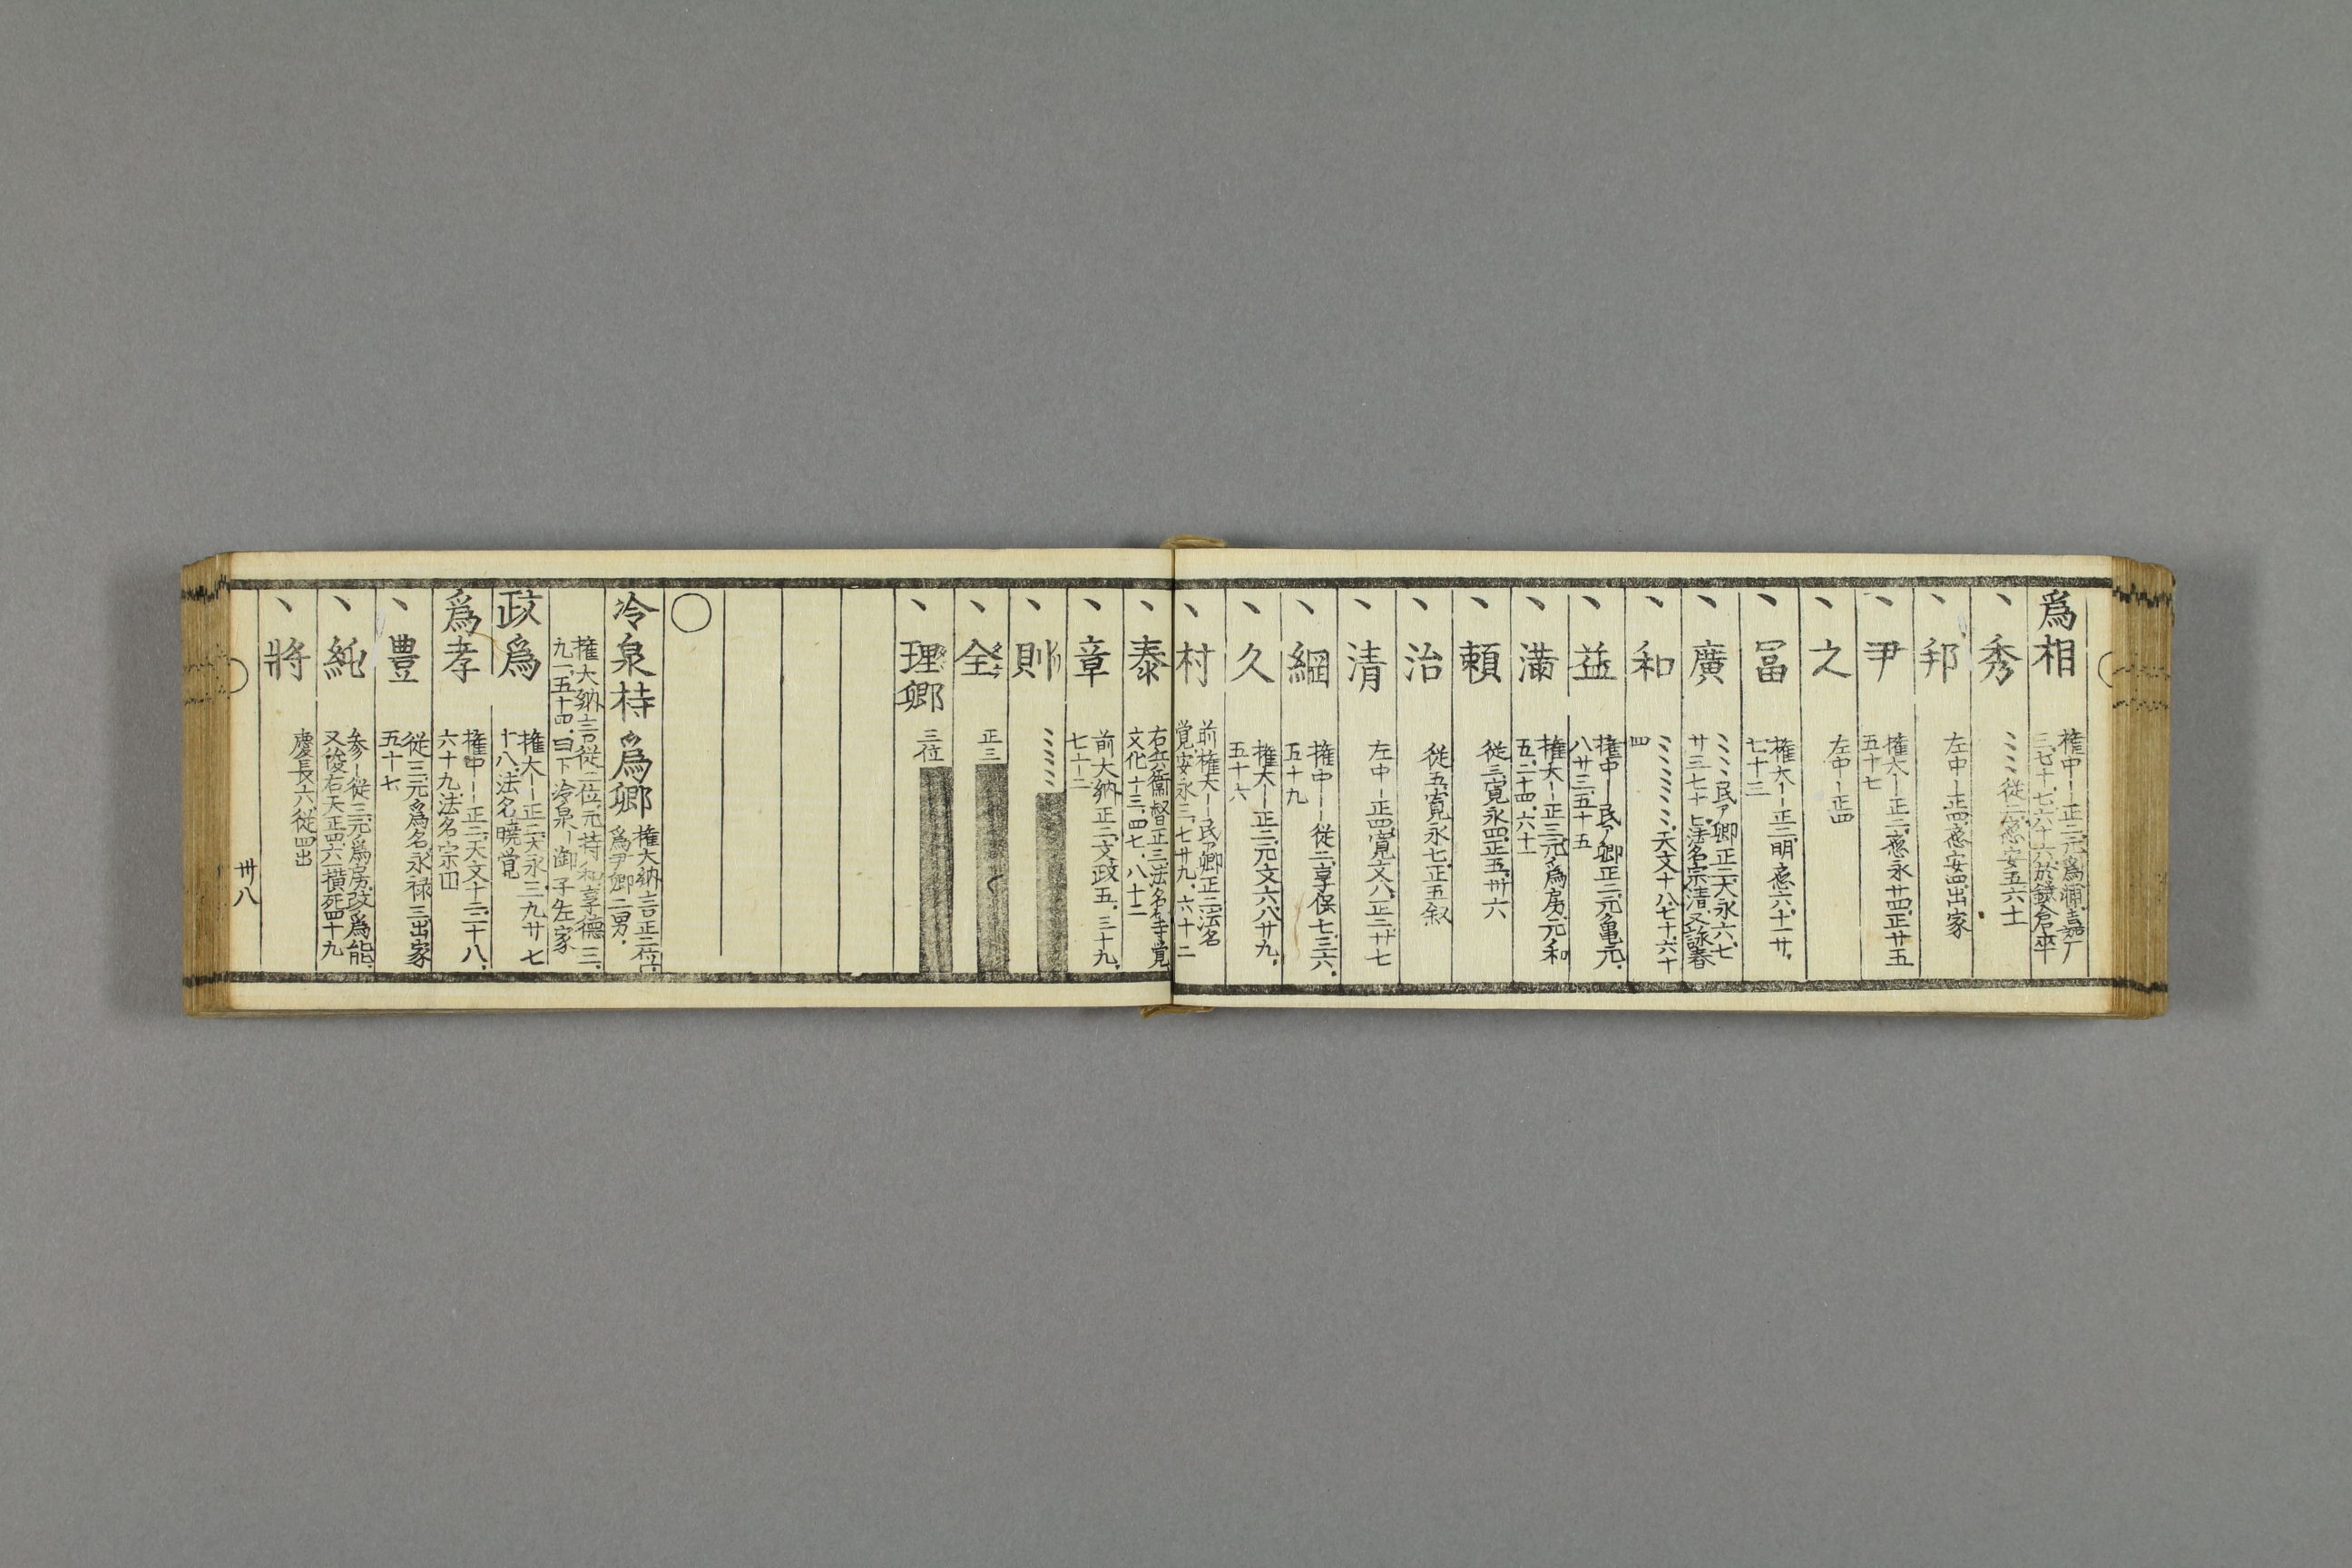 爲相
権中ー正二元爲
秀
ミミミ従二
邦
左中ー正四
出家
尹
権大ー正二
永廿四正廿五
五十七
之
左中ー正四
冨
権大ー正二明應六十一廿
七十三
廣
ミミミ民ア卿正二大永六七
廿三七十七法名宗清又詠春
和
ミミミミミミ天文十八七十六十
四
益
権中ー民ア卿正二元亀元
八廿三五十五
満
権大ー正三元爲房元和
五二十四六十一
頼
従三寛永四正五卅六
治
従五寛永七正五叙
清
左中ー正四寛文八正廿七
綱
権中ー従二享保七三六
五十九
久
権大ー正二元文六八廿九
五十六
村
前権大ー民ア卿正二法名
覚安永三七廿九六十二
泰
右兵衛督正三法名等覚
文化十三四七八十二
章
前大納正二文政五三十九
七十二
則
ミミミミ
全
正三
理卿
三位
〇
冷泉持爲卿
権大納言正二位
爲尹卿二男
権大納言従二位元持和享徳三
九一五十四曰下冷泉ー御子左家
政爲
権大ー正二大永三九廿七
十八法名曉覚
爲孝
権中ー正二天文十二二十八
六十九法名宗
豊
従三元爲名永禄三出家
五十七
純
参ー従三元爲房改爲能
又俊右天正四六一横死四十九
將
慶長六従四出
卅八